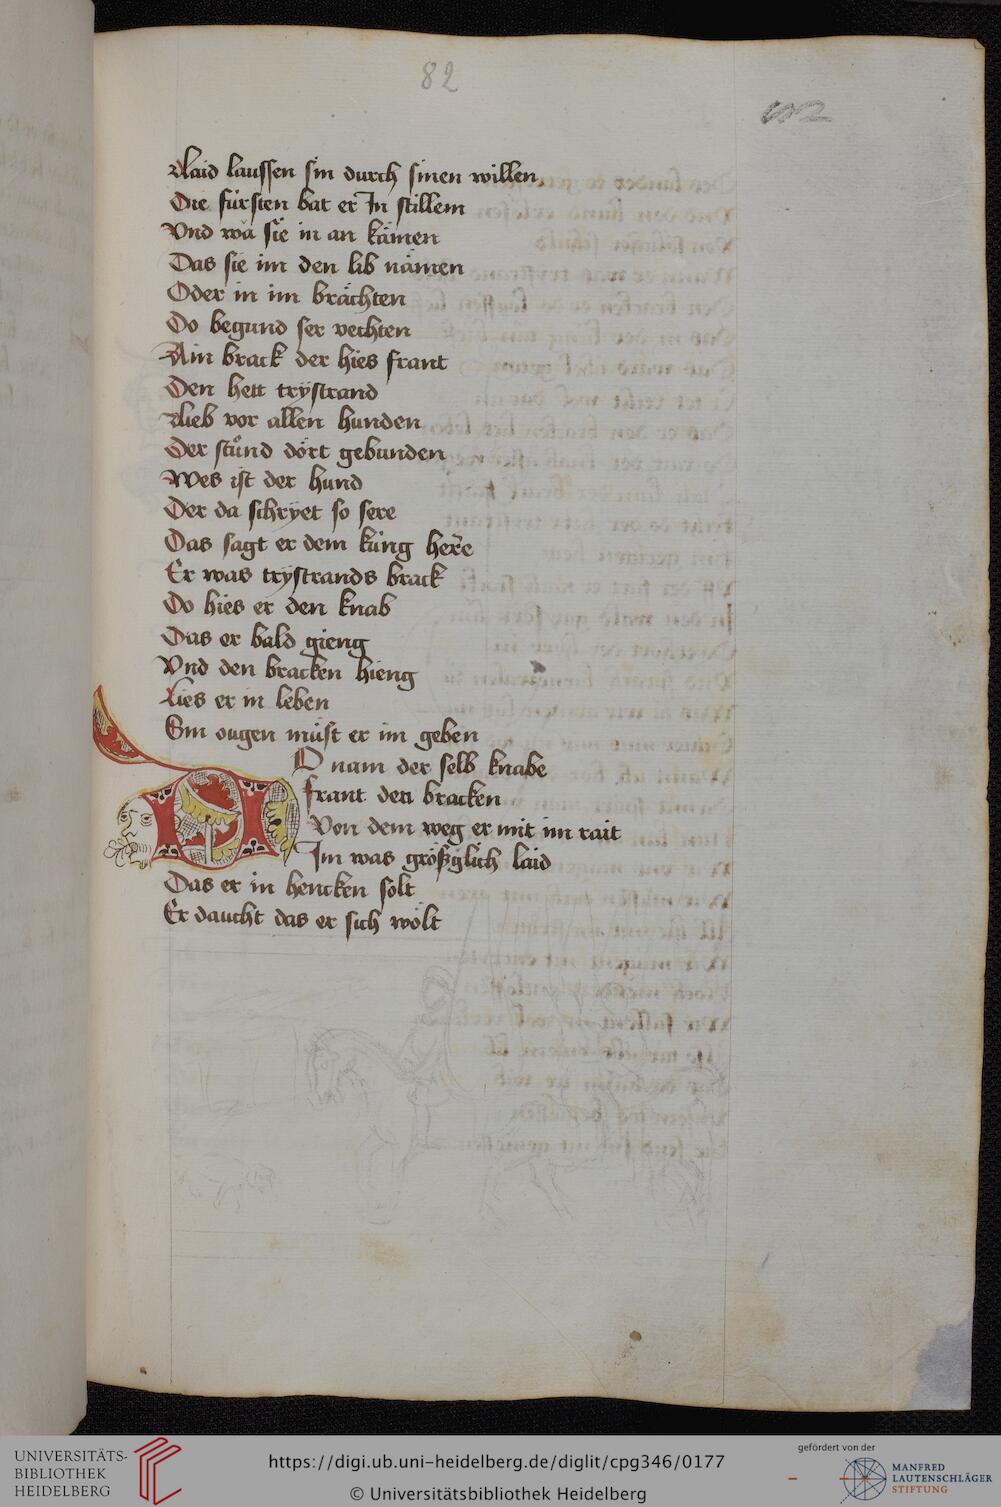 82
Laid laussen sin durch sinen willen
Die fürsten bat er In stillem
Vnd wa sie in an kämen
Das sie im den lib nämen
Oder in im brächten
Do begund ser vechten
Ain brack der hies frant
Den hett trÿstrand
Lieb vor allen hunden
Der stůnd dört gebunden
Wes ist der hund
Der da schrÿet so sere
Das sagt er dem küng here
Er was trÿstrands brack
Do hies er den knab
Das er bald gieng
Vnd den bracken hieng
Lies er in leben
Sin ougen müst er im geben
DO nam der selb knabe
frant den bracken
Von dem weg er mit im rait
Im was größglich laid
Das er in hencken solt
Er daucht das er sich wölt
UNIVERSITÄTS-
BIBLIOTHEK
HEIDELBERG
https://digi.ub.uni-heidelberg.de/diglit/cpg346/0177
© Universitätsbibliothek Heidelberg
gefördert von der
MANFRED
LAUTENSCHLÄGER
STIFTUNG